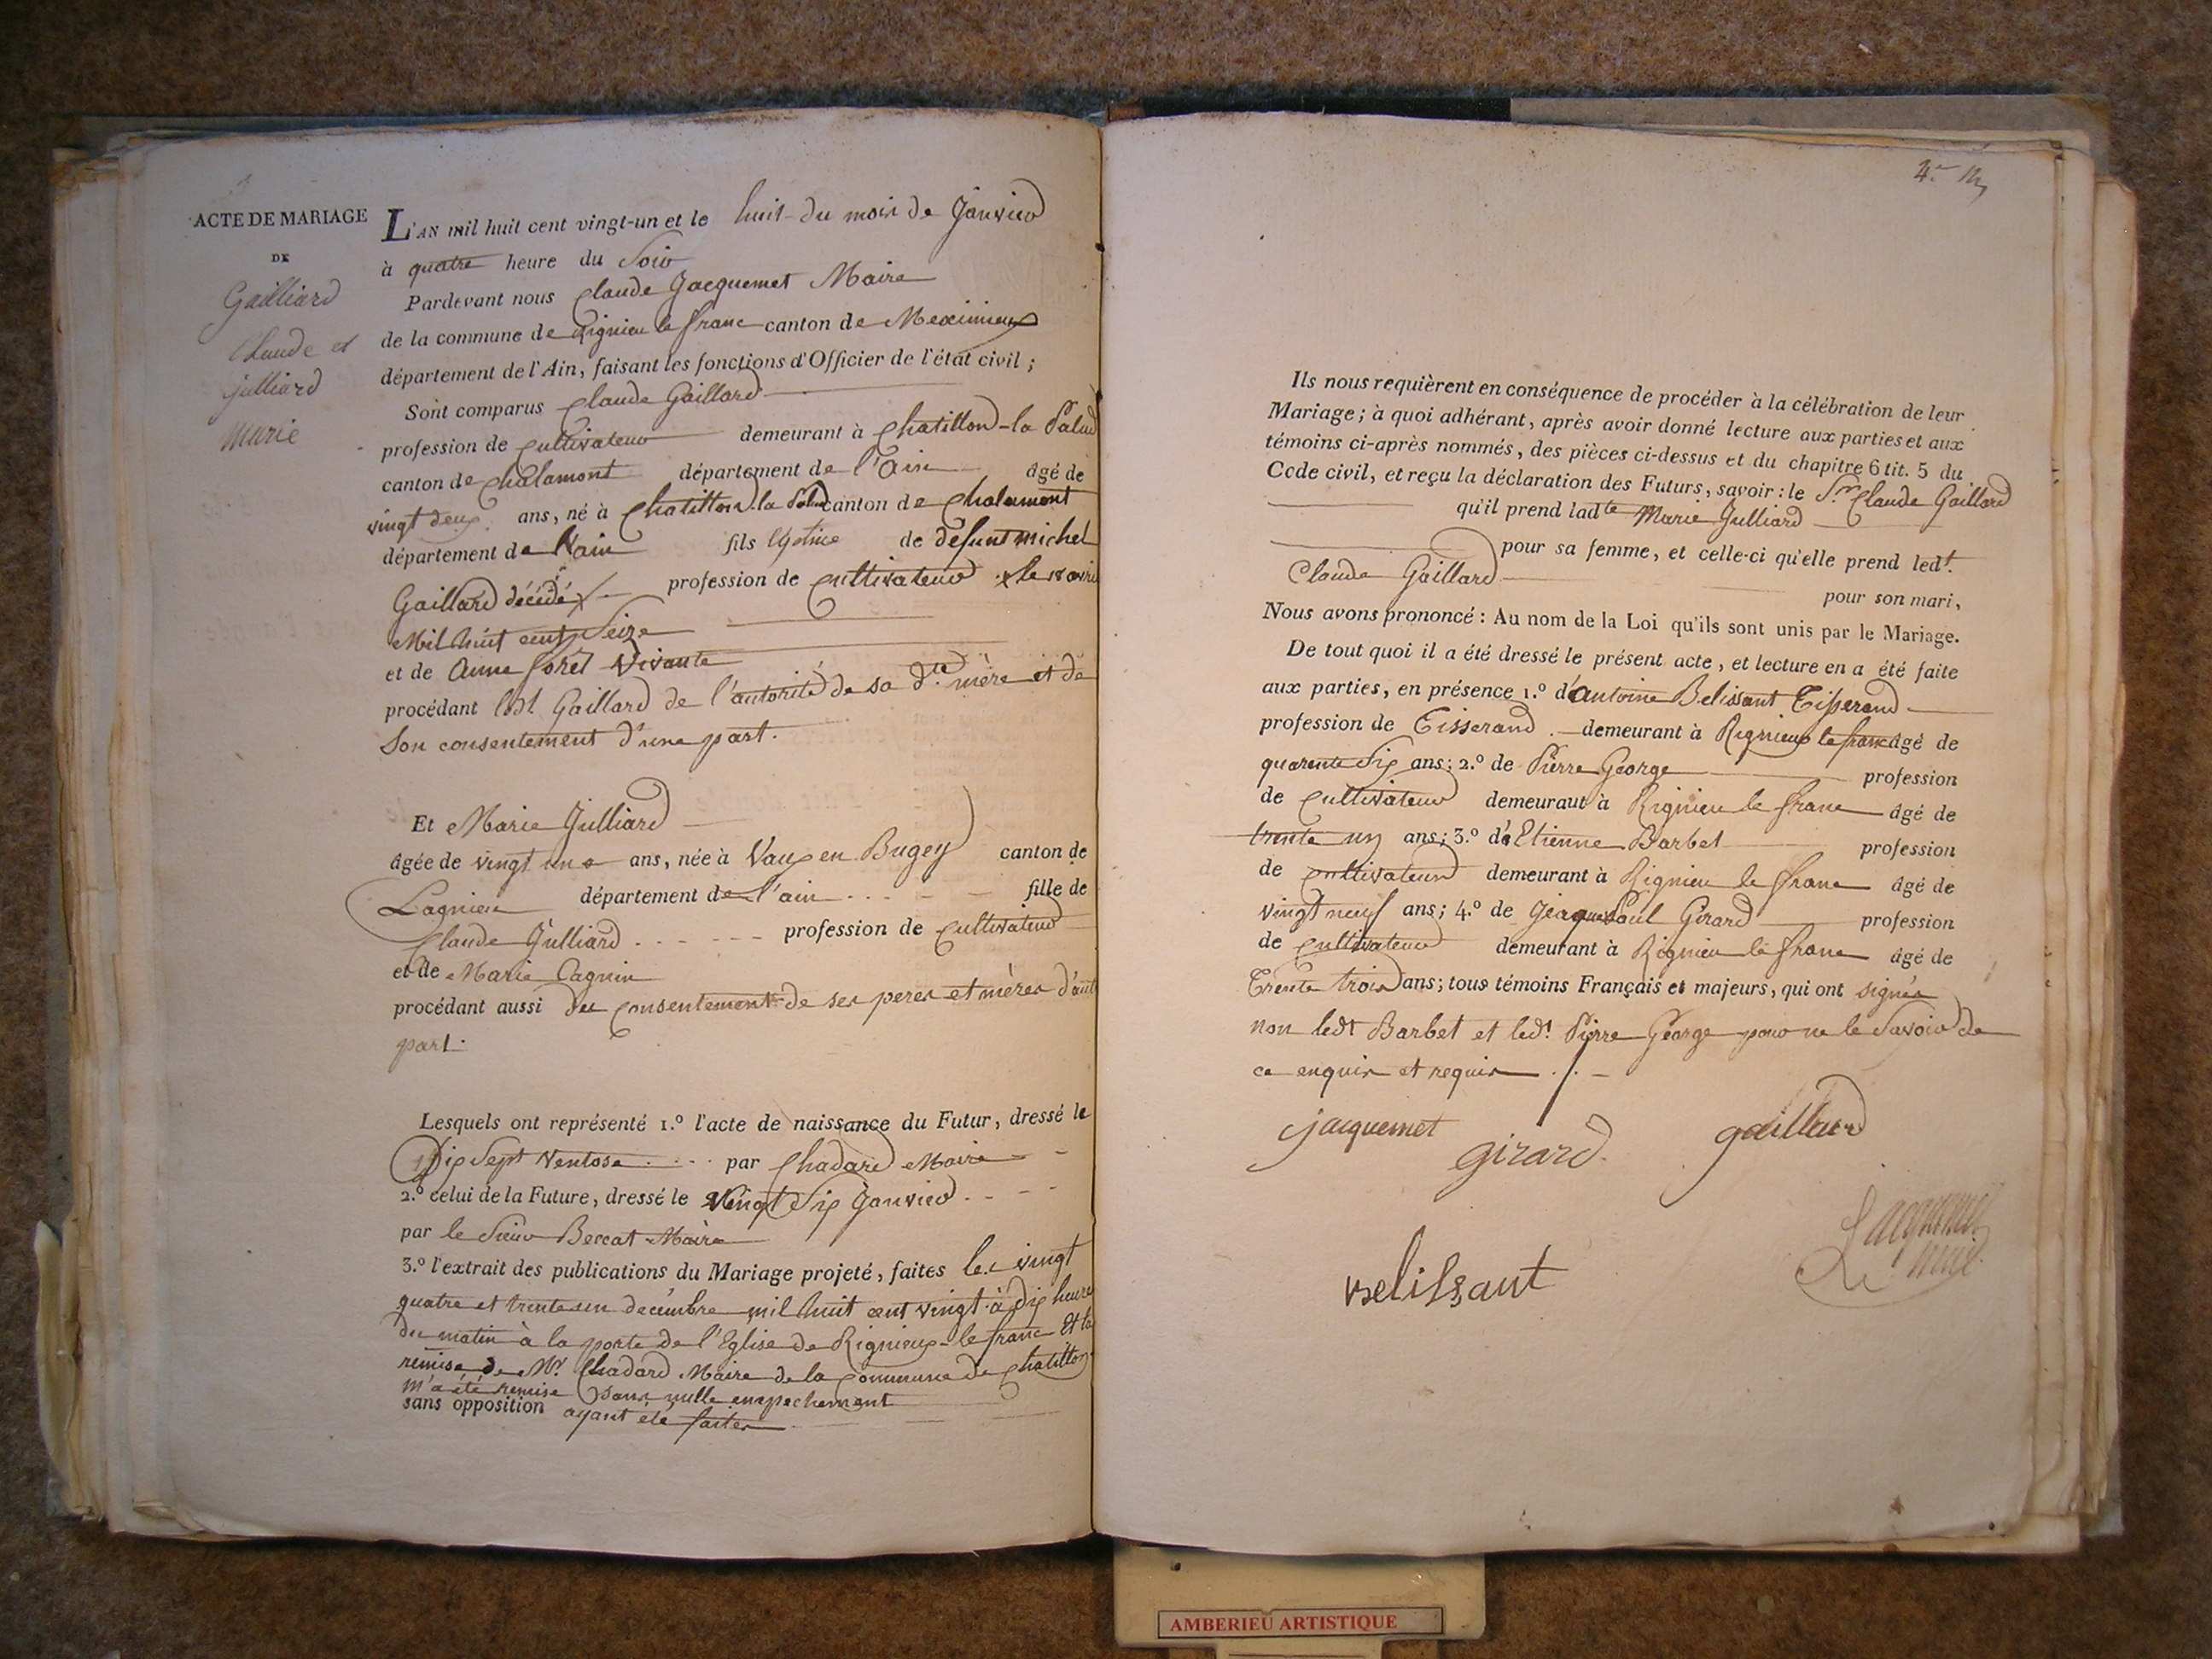 ACTE DE MARIAGE
DE
Gailliard
Claude et
julliard
marie
L'AN mil huit cent vingt-un et le huit du mois de Janvier
à quatre heure du Soir
Pardevant nous Claude Jacquemet Maire
de la commune de Rignieu le franc canton de Meximieux
département de l'Ain, faisant les fonctions d'Officier de l'état civil ;
Sont comparus Claude Gaillard
profession de Cultivateur demeurant à Chatillon-la Palud
canton de Chalamont département de l'Ain âgé de
vingt deux ans, né à Chatillon la Palud canton de Chalamont
département de l'ain fils légitime de defunt michel
Gaillard décédé profession de Cultivateur le
Mil huit cent Seize
et de Anne forêt Vivante
procédant Gaillard de l'autorité de sa dte mère et de
Son consentement d'une part.
Et Marie Julliard
âgée de vingt une ans, née à Vaux en Bugey canton de
Lagnieu département de l'ain fille de
Claude Julliard profession de Cultivateur
et de Marie Cagnin
procédant aussi du Consentement de ses peres et mères d'aut
part.
Lesquels ont représenté 1.º l'acte de naissance du Futur, dressé le
Dix Sept Ventose par Chadard Maire
2.º celui de la Future, dressé le Vingt Six Janvier
par le Sieur Maire
3.º l'extrait des publications du Mariage projeté, faites les vingt
quatre et trente un decembre mil huit cent vingt à dix heures
du matin à la porte de l'Eglise de Rignieux-le franc Et la
remise de Mr. Chadard Maire de la Commune de Chatillon
m'a été remise sans nulle empechement
sans opposition ayant été faites
4.e
Ils nous requièrent en conséquence de procéder à la célébration de leur
Mariage ; à quoi adhérant, après avoir donné lecture aux parties et aux
témoins ci-après nommés, des pièces ci-dessus et du chapitre 6 tit. 5 du
Code civil, et reçu la déclaration des Futurs, savoir : le S.r Claude Gaillard
qu'il prend ladte Marie Julliard
pour sa femme, et celle-ci qu'elle prend ledt.
Claude Gaillard pour son mari,
Nous avons prononcé : Au nom de la Loi qu'ils sont unis par le Mariage.
De tout quoi il a été dressé le présent acte, et lecture en a été faite
aux parties, en présence 1.º d'Antoine Belissant Tisserand
profession de Tisserand demeurant à Rignieux le franc âgé de
quarente Six ans ; 2.º de Pierre George profession
de Cultivateur demeuraut à Rignieu le franc âgé de
trente un ans ; 3.º de Etienne Barbet profession
de Cultivateur demeurant à Rignieu le franc âgé de
vingt neuf ans ; 4.º de Paul Girard profession
de Cultivateur demeurant à Rignieu le franc âgé de
Trente trois ans ; tous témoins Français et majeurs, qui ont signés
non ledt Barbet et ledt Pierre George pour ne le Savoir de
ce enquis et requis
jacquemet
girard
gaillard
Belissant
Jacquemet
AMBERIEU ARTISTIQUE